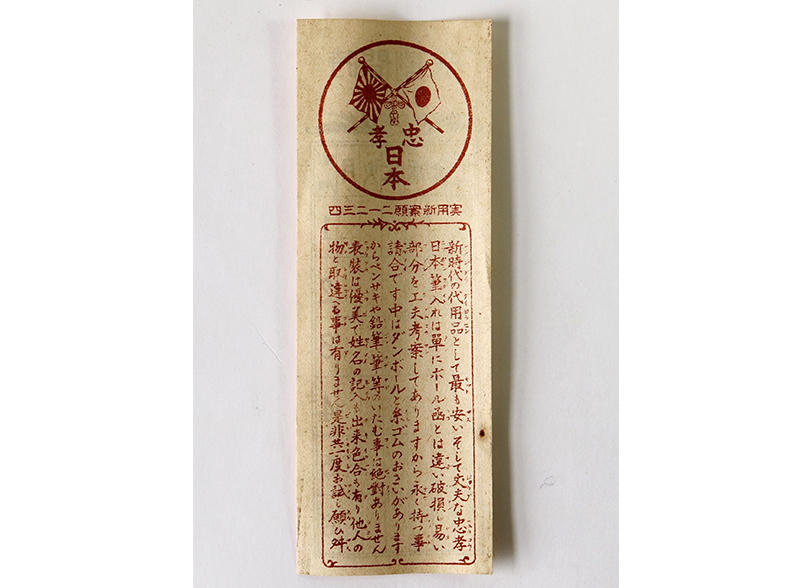 忠孝
日本
実用新案願二一二三四
新時代の代用品として最も安いそして丈夫な忠孝
日本筆入れは單にボール函とは違い破損し易い
部分を工夫考案してありますから永く持つ事
請合です中はダンボールと糸ゴムのおさいがあります
からペンサキや鉛筆筆等のいたむ事は絶對ありません
表裝は優美で姓名の記入も出来色合も有り他人の
物と取違へる事は有りません是非共一度お試し願ひ舛